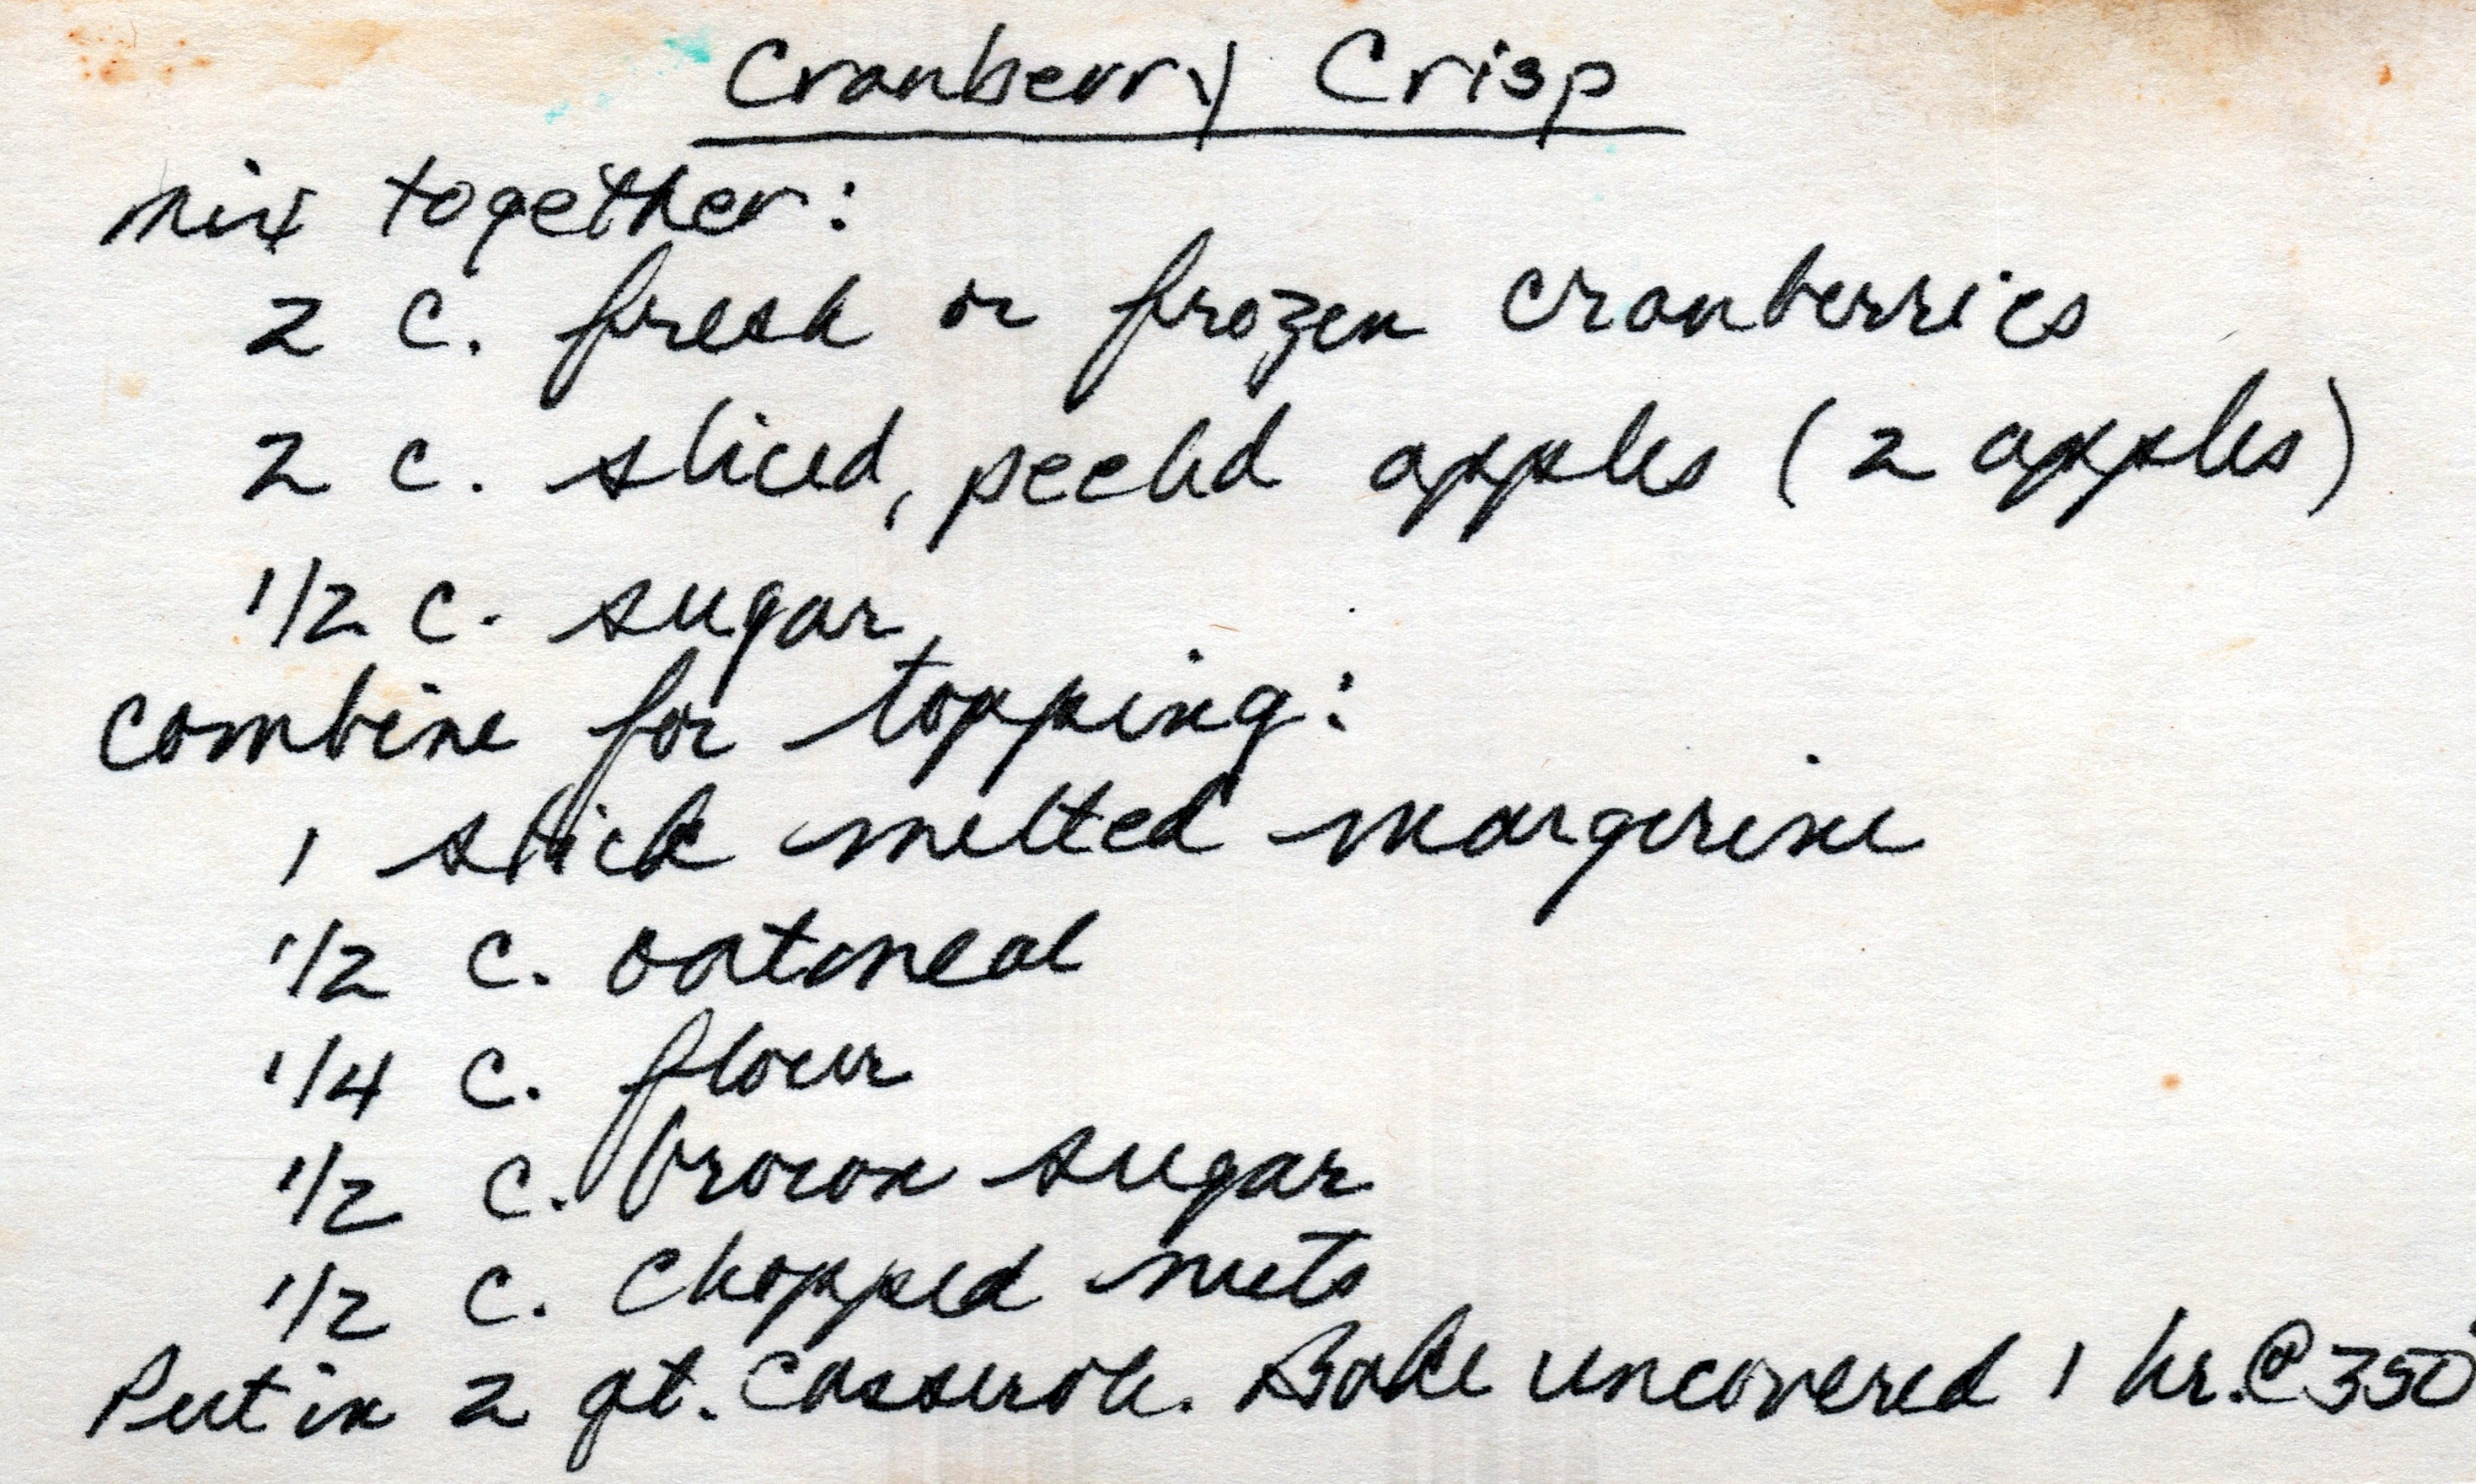 Cranberry Crisp
mix together:
2 c. fresh or frozen cranberries
2 c. sliced, peeled apples (2 apples)
1/2 c. sugar
combine for topping:
1 stick melted margerine
1/2 c. oatmeal
1/4 c. flour
1/2 c. brown sugar
1/2 c. chopped nuts
Put in 2 qt. casserole. Bake uncovered 1 hr. @ 350°